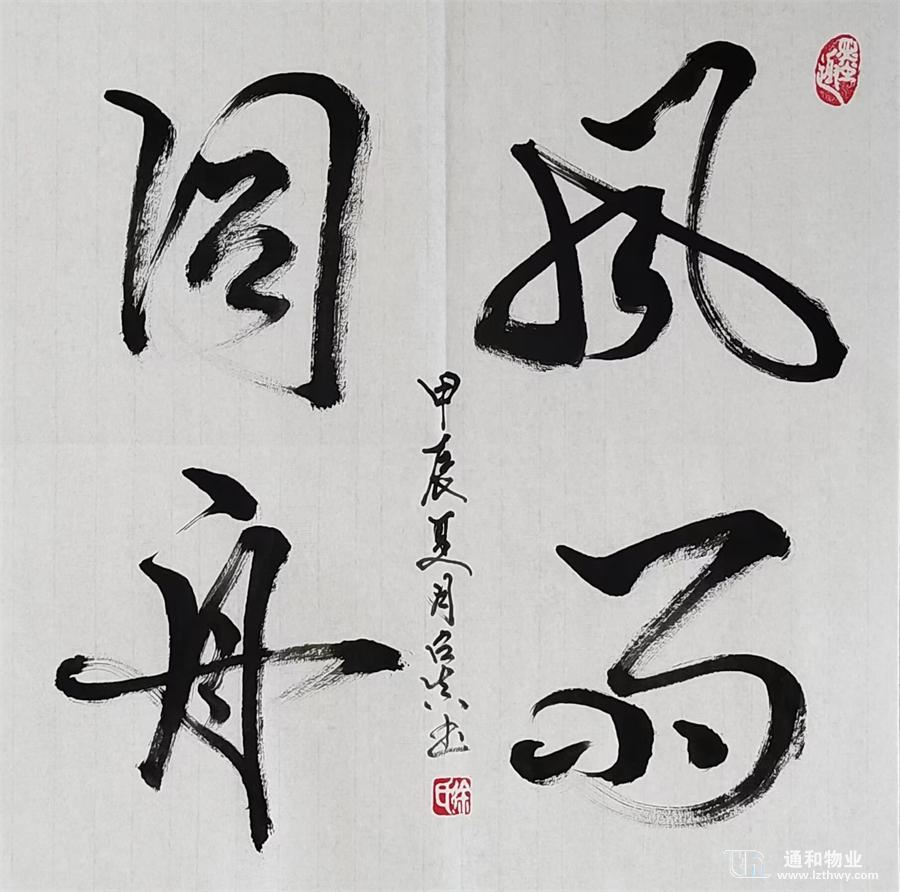 風雨
同舟
甲辰夏月
书
徐氏
通和物业
www.lzthwy.com